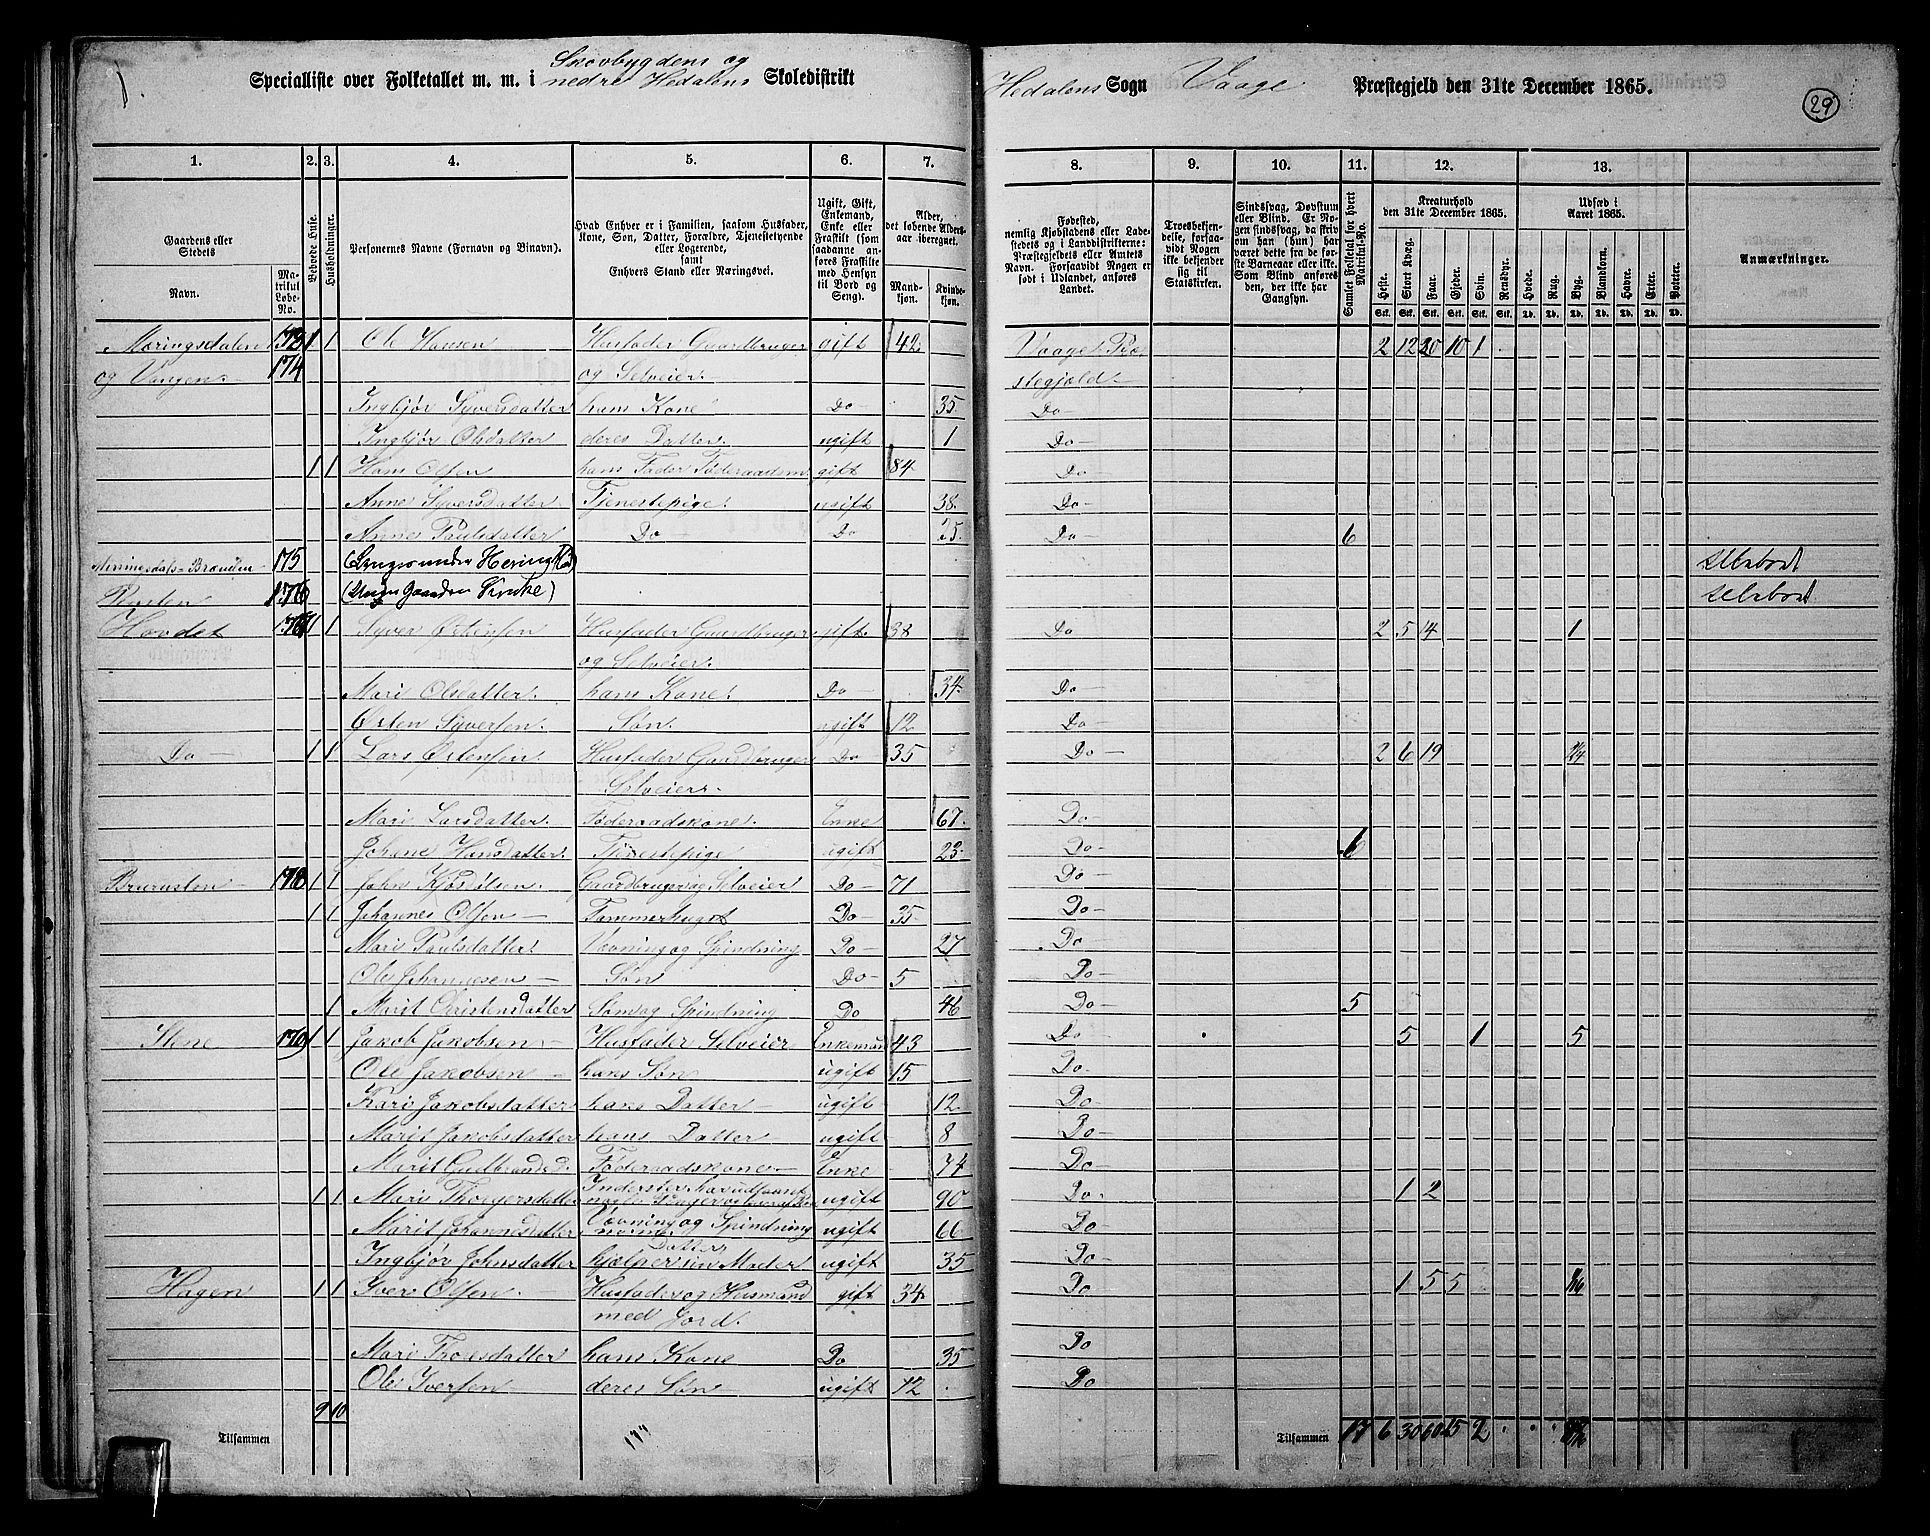 Specialliste over Folketallet m. m. i Skovbygdens og nedre Hedalens Skoledistrikt
Hedalens Sogn Vaage Præstegjeld den 31te December 1865.
29
1. 2. 3. 4. 5. 6. 7. 8. 9. 10. 11. 12. 13.
Gaardens eller Stedets
Navn.
Matrikul Løbe-No.
Beboede Huse.
Husholdninger.
Personernes Navne (Fornavn og Binavn).
Hvad Enhver er i Familien, saasom Husfader, Kone, Søn, Datter, Forældre, Tjenestetyende eller Logerende, samt Enhvers Stand eller Næringsvei.
Ugift, Gift, Enkemand, Enke eller Fraskilt (som saadanne anføres Fraskilte med Hensyn til Bord og Seng).
Alder, det løbende Aldersaar iberegnet.
Mandkjøn. Kvindekjøn.
Fødested, nemlig Kjøbstadens eller Ladestedets og i Landdistrikterne: Præstegjeldets eller Amtets Navn. Forsaavidt Nogen er født i Udlandet, anføres Landet.
Troesbekjendelse, forsaavidt Nogen ikke bekjender sig til Statskirken.
Sindssvag, Døvstum eller Blind. Er Nogen sindssvag, da skrives om han (hun) har været dette fra de første Barneaar eller ikke. Som Blind anføres den, der ikke har Gangsyn.
Samlet Folketal for hvert Matrikul-No.
Kreaturhold den 31te December 1865.
Heste. Stort Kvæg. Faar. Gjeder. Svin. Rensdyr.
Udsæd i Aaret 1865.
Hvede. Rug. Byg. Blandkorn. Havre. Erter. Poteter.
Anmærkninger.
Mæringsdalen 173 1 1 Ole Hansen Husfader Gaardbruger gift 42 Vaage Præ 2 12 20 10 1
og Vangen 174 og Selveier stegjeld
Ingbjør Syversdatter hans Kone Do 35 Do
Ingbjør Olsdatter deres Datter ugift 1 Do
1 1 Hans Olsen hans Fader Føderaadsm gift 84 Do
Anne Syversdatter Tjenestepige ugift 38 Do
Anne Paulsdatter Do Do 25 Do 6
175
176
Hovdet 1 1 Syver Østensen Husfader Gaardbruger gift 38 Do 2 5 14 1
og Selveier
Mari Olsdatter hans Kone Do 34 Do
Østen Syversen Søn ugift 12 Do
Do 1 1 Lars Østensen Husfader Gaardbruger Do 35 Do 2 6 19
Selveier
Mari Larsdatter Føderaadskone Enke 67 Do
Johane Hansdatter Tjenestepige ugift 23 Do 6
Brurusten 178 1 1 John Kjøstelsen Gaardbruger og Selveier Do 71 Do
1 1 Johannes Olsen Tømmerhuget Do 35 Do
Mari Paulsdatter Vævning og Spindning Do 27 Do
Ole Johannesen Søn Do 5 Do
1 Marit Christensdatter Søm og Spindning Do 46 Do 5
Stene 179 1 1 Jakob Jakobsen Husfader Selveier Enkemand 43 Do 5 1 5
Ole Jakobsen hans Søn ugift 15 Do
Kari Jakobsdatter hans Datter ugift 12 Do
Marit Jakobsdatter hans Datter ugift 8 Do
Marit Gudbrandsd. Føderaadskone Enke 74 Do
1 1 Mari Thorgersdatter ugift 90 Do 1 2
Marit Johannesdatter Vævning og Spindning ugift 66 Do
Datter
Ingbjør Johnsdatter hjælper sin Moder ugift 35 Do
Hagen 1 1 Iver Olsen Husfader og Husmand gift 34 Do 1 5 5
med Jord.
Mari Troesdatter hans Kone Do 35 Do
Ole Iversen deres Søn ugift 12 Do
9 10
Tilsammen
Tilsammen 17 6 30 60 15 2